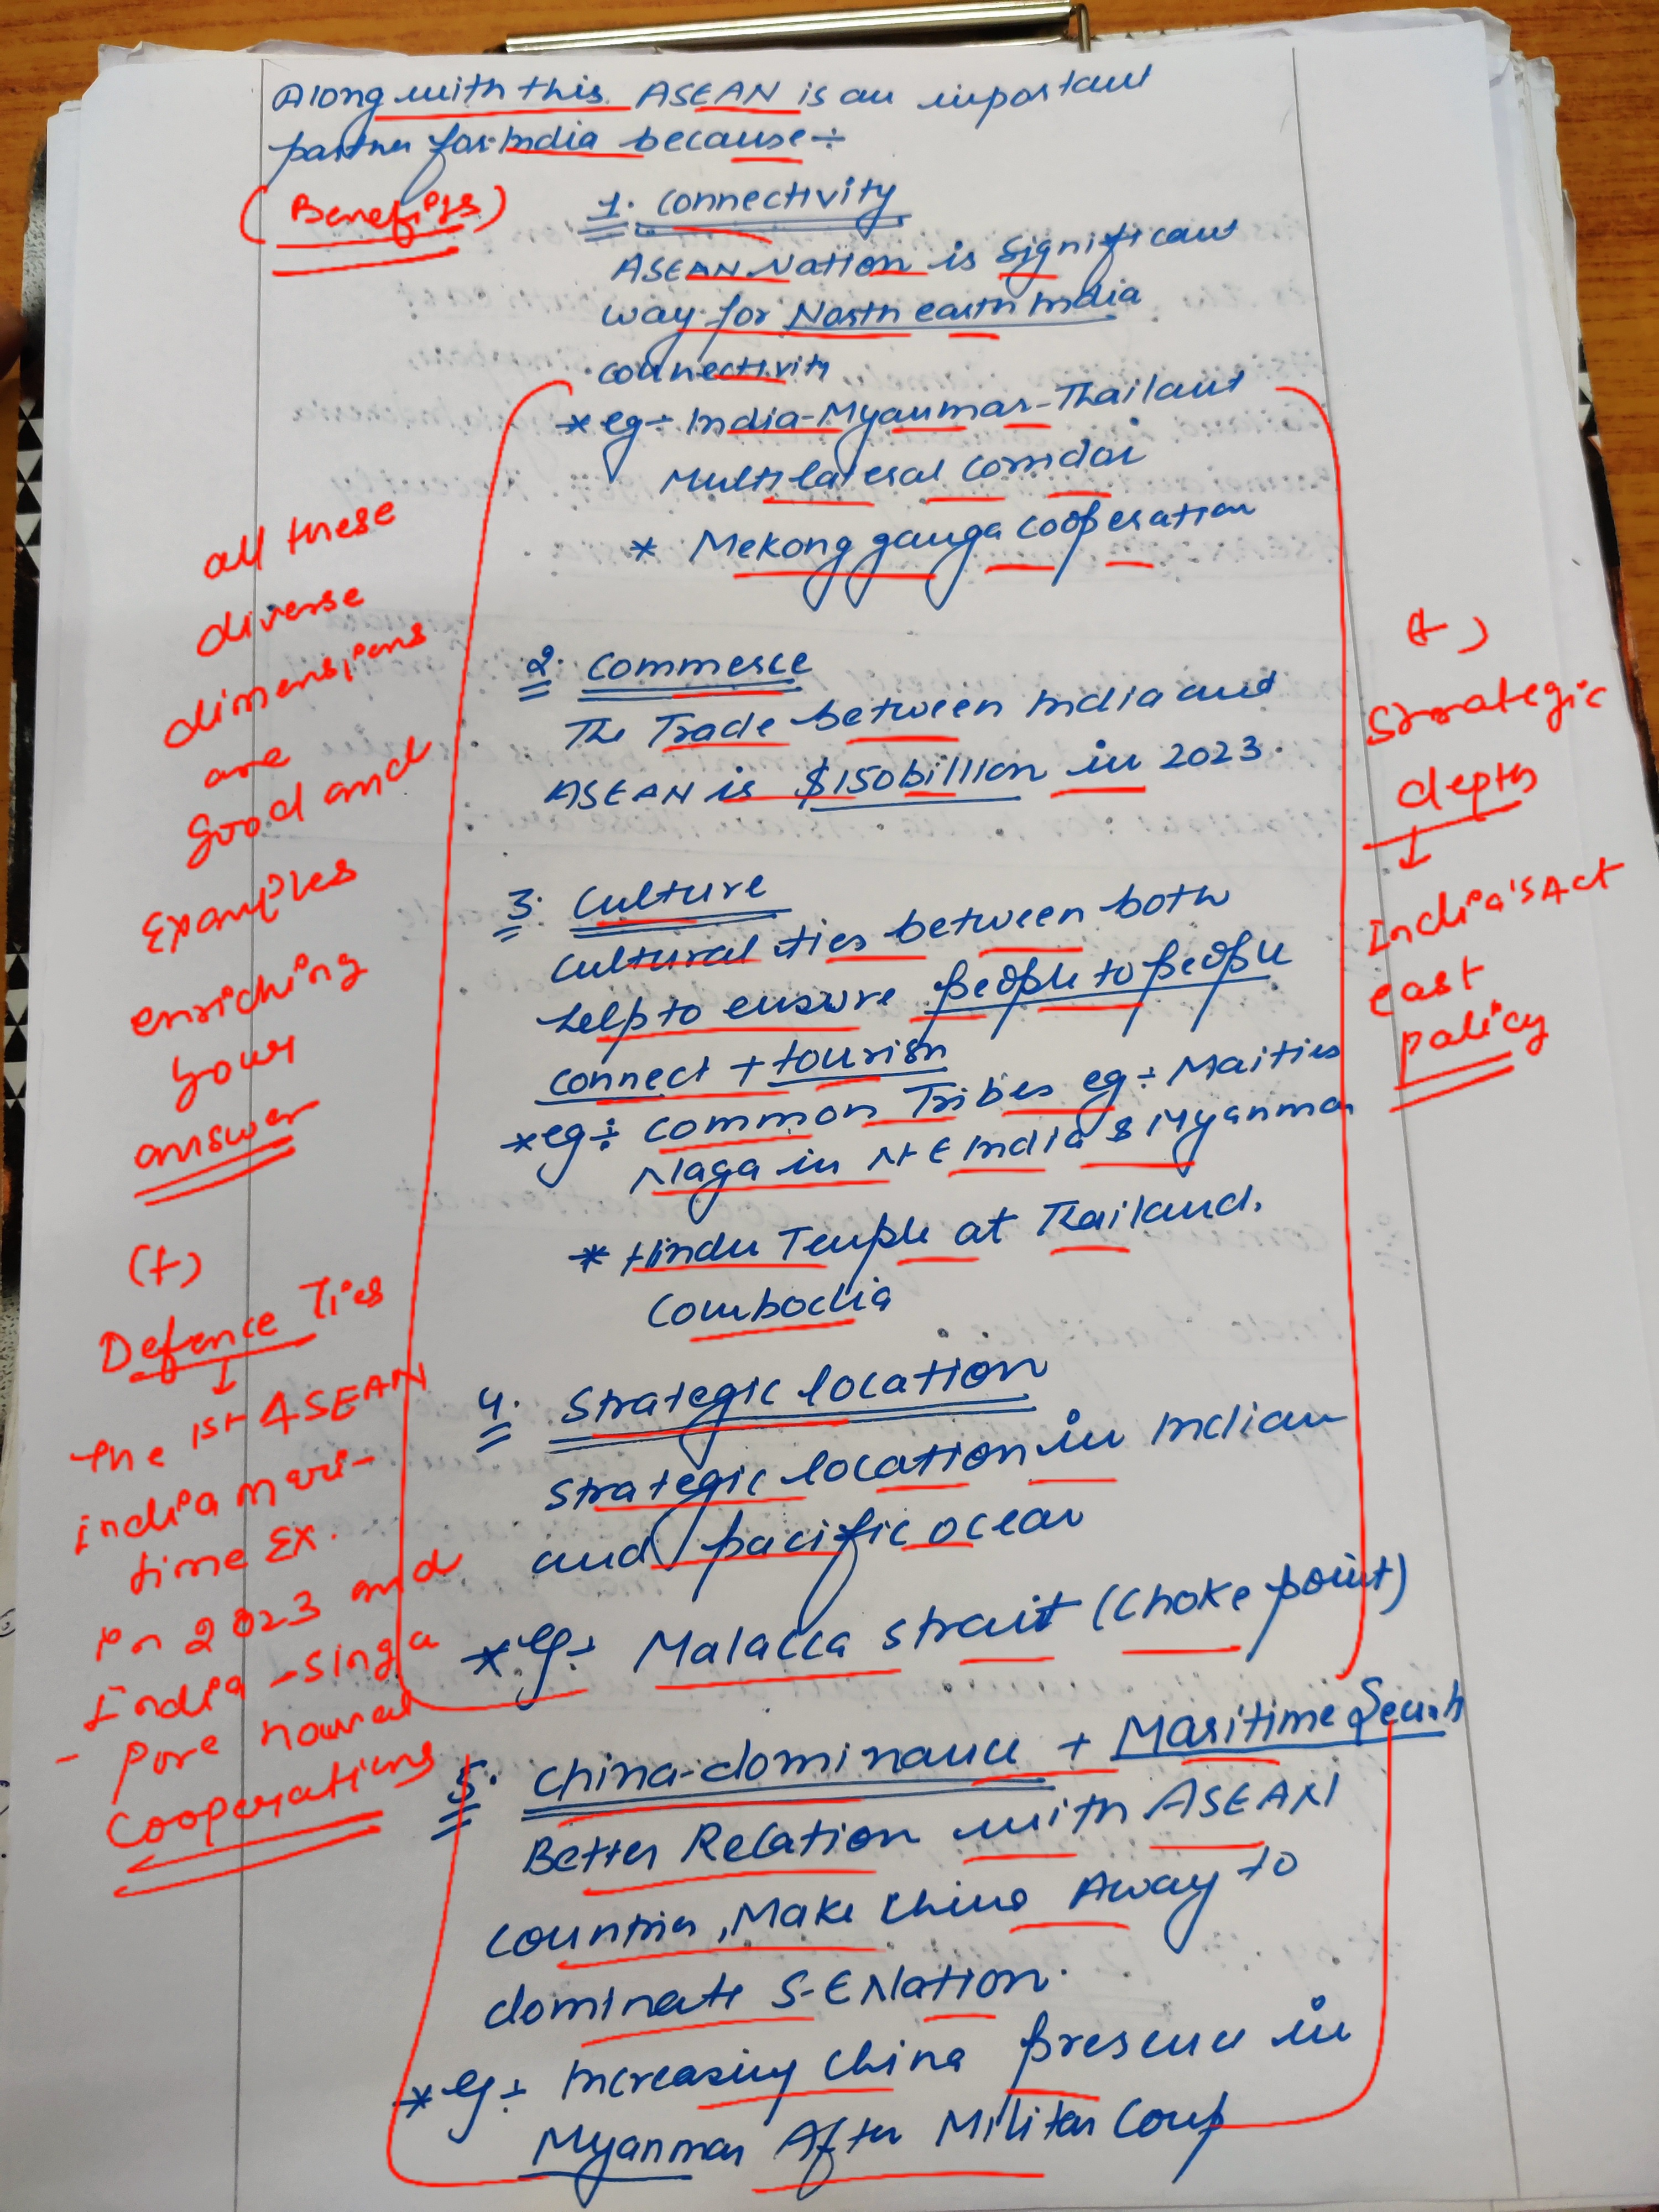 Along with this ASEAN is an important
partner for India because ÷
(Benefits)
1. connectivity
ASEAN Nation is significant
way for North east India
connectivity
* eg ÷ India-Myanmar-Thailant
Multilateral Corridor
* Mekong ganga cooperation
2. commerce
The Trade between India and
ASEAN is $150billion in 2023.
3. culture
cultural ties between both
help to ensure people to people
connect + tourism
* eg ÷ common Tribes eg ÷ Maities
Naga in N-E India & Myanmar
* Hindu Temple at Thailand.
Combodia
4. Strategic location
Strategic location in Indian
and pacific ocean
* eg ÷ Malacca strait (choke point)
5. China-dominance + Maritime
Better Relation with ASEAN
countries, Make China Away to
dominate S-E Nation.
* eg ÷ Increasing China presence in
Myanmar After Militar Coup
all these
diverse
dimensions
are
good and
Examples
enriching
your
answer
(+)
Defence Ties
↓
The 1st ASEAN
india mari-
time Ex.
in 2023 and
India - Singa
- pore naval
cooperations
(+)
Strategic
depth
↓
India's Act
east
policy